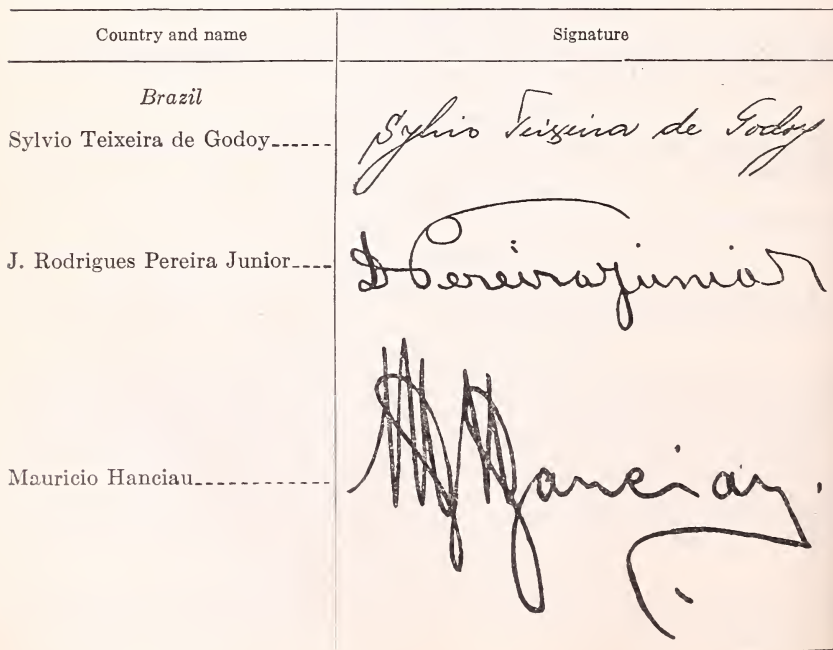 Country and name Signature
Brazil
Sylvio Teixeira de Godoy------ Sylvio Teixeira de Godoy
J. Rodrigues Pereira Junior---- Pereira Junior
Mauricio Hanciau------------ M Hanciau.